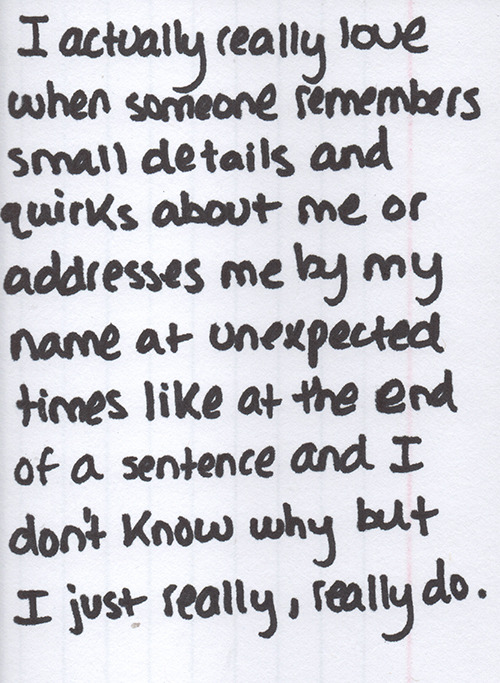 I actually really love
when someone remembers
small details and
quirks about me or
addresses me by my
name at unexpected
times like at the end
of a sentence and I
don't know why but
I just really, really do.